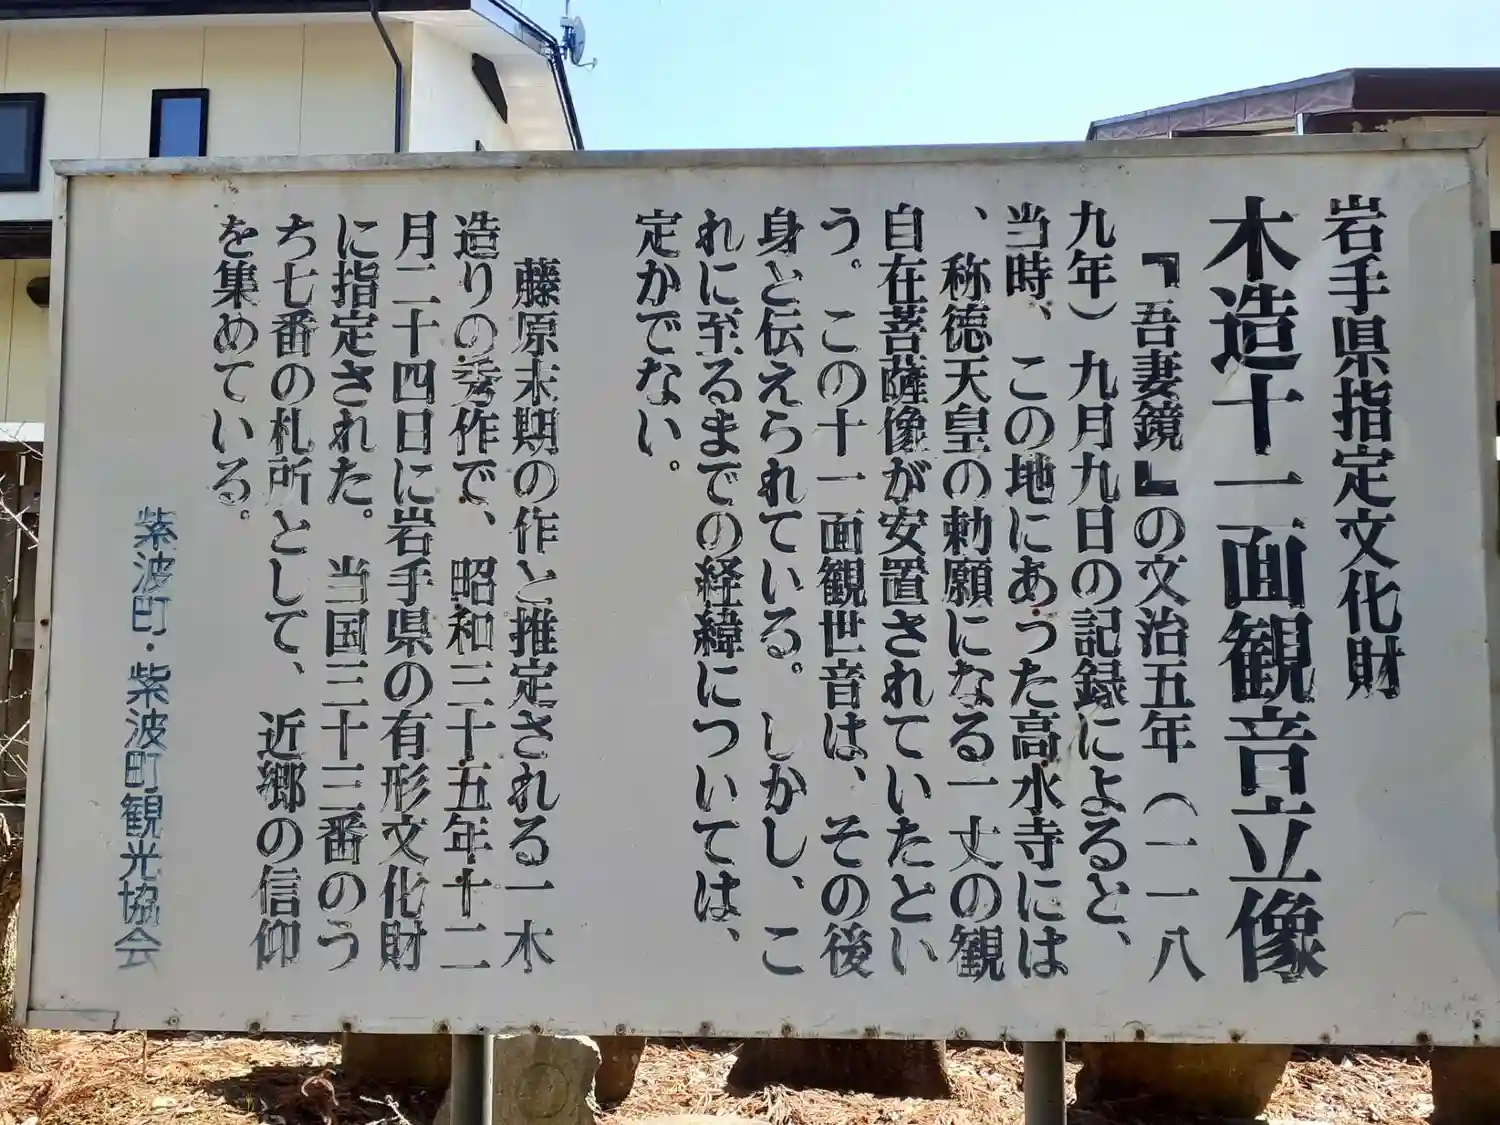 岩手県指定文化財
木造十一面観音立像
『吾妻鏡』の文治五年（一一八
九年）九月九日の記録によると、
当時、この地にあった高水寺には
、称徳天皇の勅願になる一丈の観
自在菩薩像が安置されていたとい
う。この十一面観世音は、その後
身と伝えられている。しかし、こ
れに至るまでの経緯については、
定かでない。
藤原末期の作と推定される一木
造りの秀作で、昭和三十五年十二
月二十四日に岩手県の有形文化財
に指定された。当国三十三番のう
ち七番の札所として、近郷の信仰
を集めている。
紫波町・紫波町観光協会